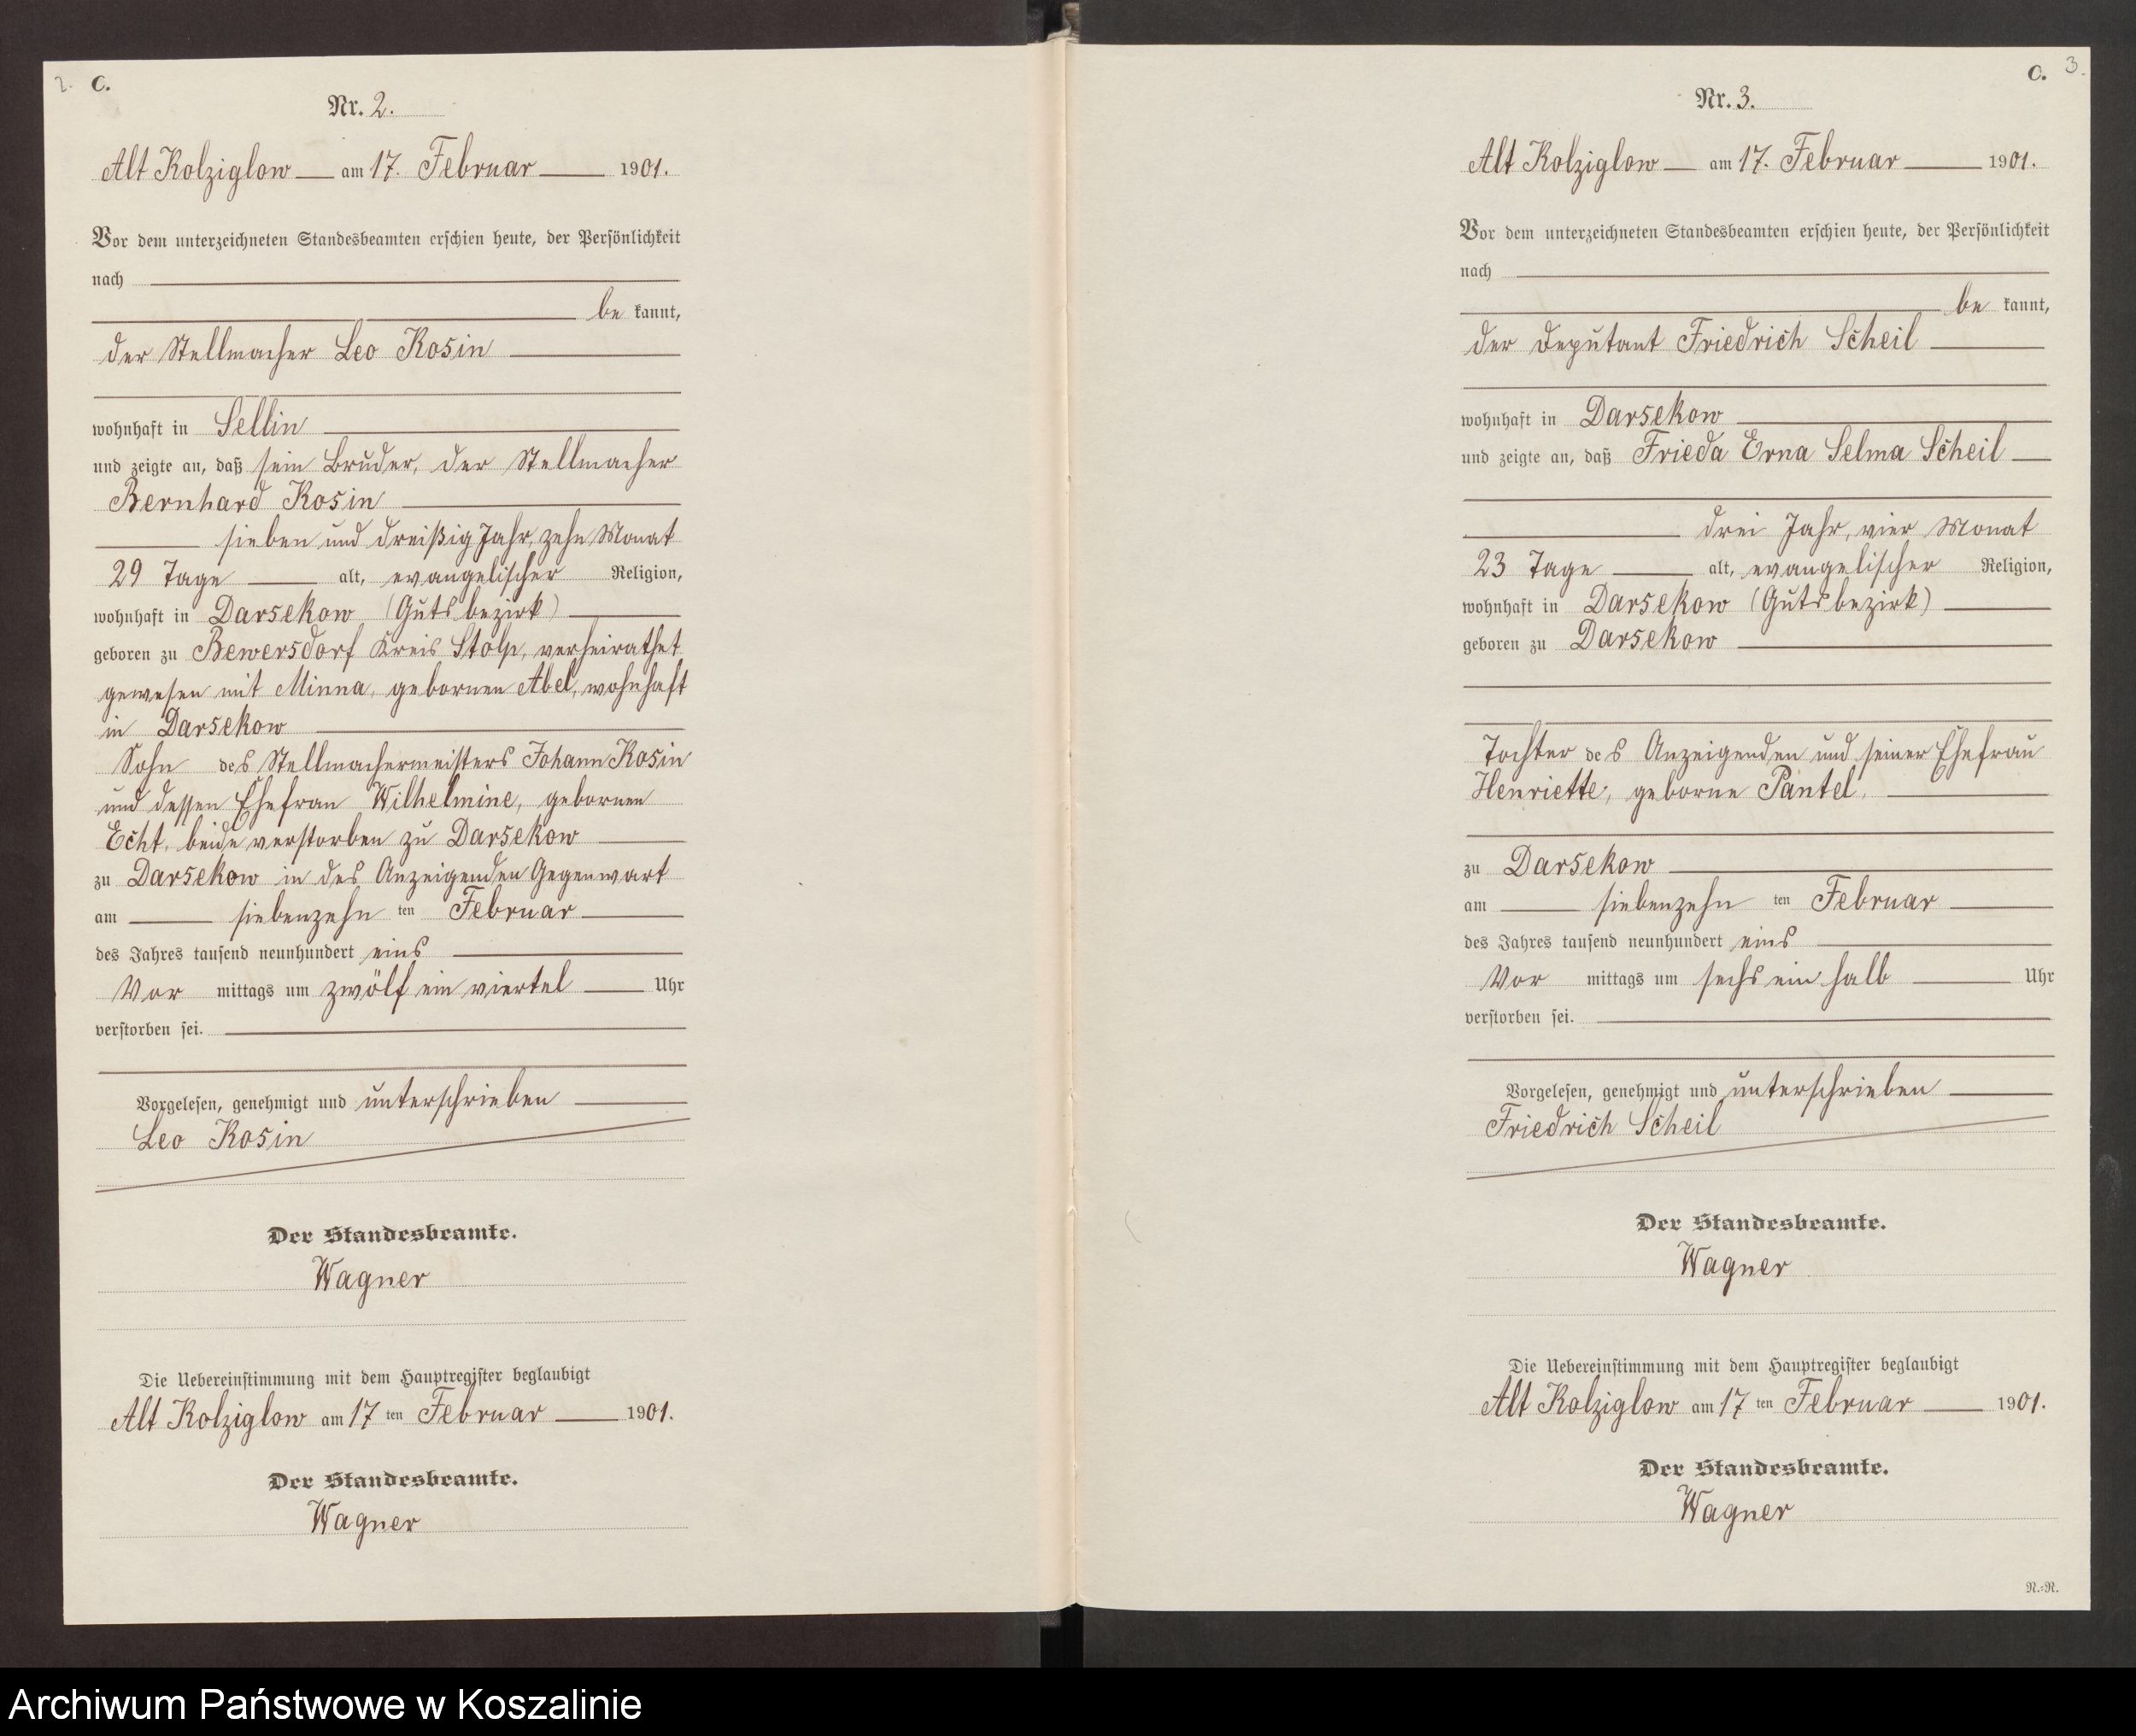 2. C.
Nr. 2.
Alt Kolziglow am 17. Februar 1901.
Vor dem unterzeichneten Standesbeamten erschien heute, der Persönlichkeit
nach
be kannt,
der Stellmacher Leo Kosin
wohnhaft in Sellin
und zeigte an, daß sein Bruder, der Stellmacher
Bernhard Kosin
sieben und dreißig Jahr, zehn Monat
29 Tage alt, evangelischer Religion,
wohnhaft in Darsekow (Gutsbezirk)
geboren zu Bewersdorf Kreis Stolp, verheirathet
gewesen mit Minna, gebornen Abel, wohnhaft
in Darsekow
Sohn des Stellmachermeisters Johann Kosin
und dessen Ehefrau Wilhelmine, gebornen
Echt, beide verstorben zu Darsekow
zu Darsekow in des Anzeigenden Gegenwart
am siebenzehn ten Februar
des Jahres tausend neunhundert eins
Vor mittags um zwölf ein viertel Uhr
verstorben sei.
Vorgelesen, genehmigt und unterschrieben
Leo Kosin
Der Standesbeamte.
Wagner
Die Uebereinstimmung mit dem Hauptregister beglaubigt
Alt Kolziglow am 17 ten Februar 1901.
Der Standesbeamte.
Wagner
C. 3.
Nr. 3.
Alt Kolziglow am 17. Februar 1901.
Vor dem unterzeichneten Standesbeamten erschien heute, der Persönlichkeit
nach
be kannt,
der Deputant Friedrich Scheil
wohnhaft in Darsekow
und zeigte an, daß Frieda Erna Selma Scheil
drei Jahr, vier Monat
23 Tage alt, evangelischer Religion,
wohnhaft in Darsekow (Gutsbezirk)
geboren zu Darsekow
Tochter des Anzeigenden und seiner Ehefrau
Henriette, geborne Pantel,
zu Darsekow
am siebenzehn ten Februar
des Jahres tausend neunhundert eins
Vor mittags um sechs ein halb Uhr
verstorben sei.
Vorgelesen, genehmigt und unterschrieben
Friedrich Scheil
Der Standesbeamte.
Wagner
Die Uebereinstimmung mit dem Hauptregister beglaubigt
Alt Kolziglow am 17 ten Februar 1901.
Der Standesbeamte.
Wagner
N.-N.
Archiwum Państwowe w Koszalinie